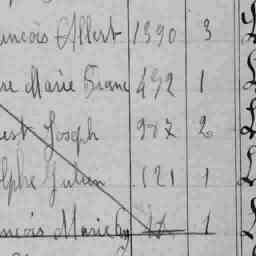 ancois Albert 1390 3
re Marie Franc 492 1
est Joseph 997 2
olphe Julien 121 1
ncois Marie 1